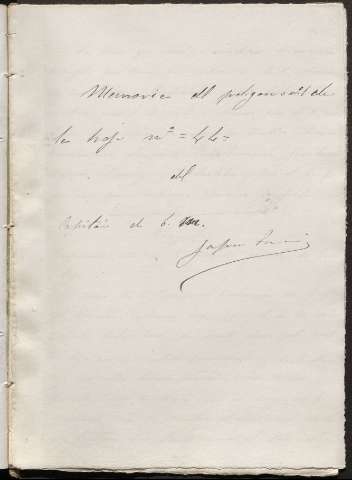 Memoria del poligono nº 1 de
la hoja nº = 44 =
del
Capitán de E. M.